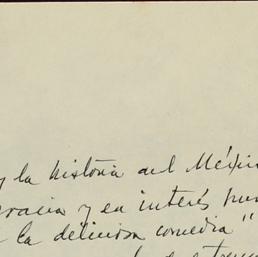 y la historia del Méxi
gracia y en interés
la deliciosa comedia"